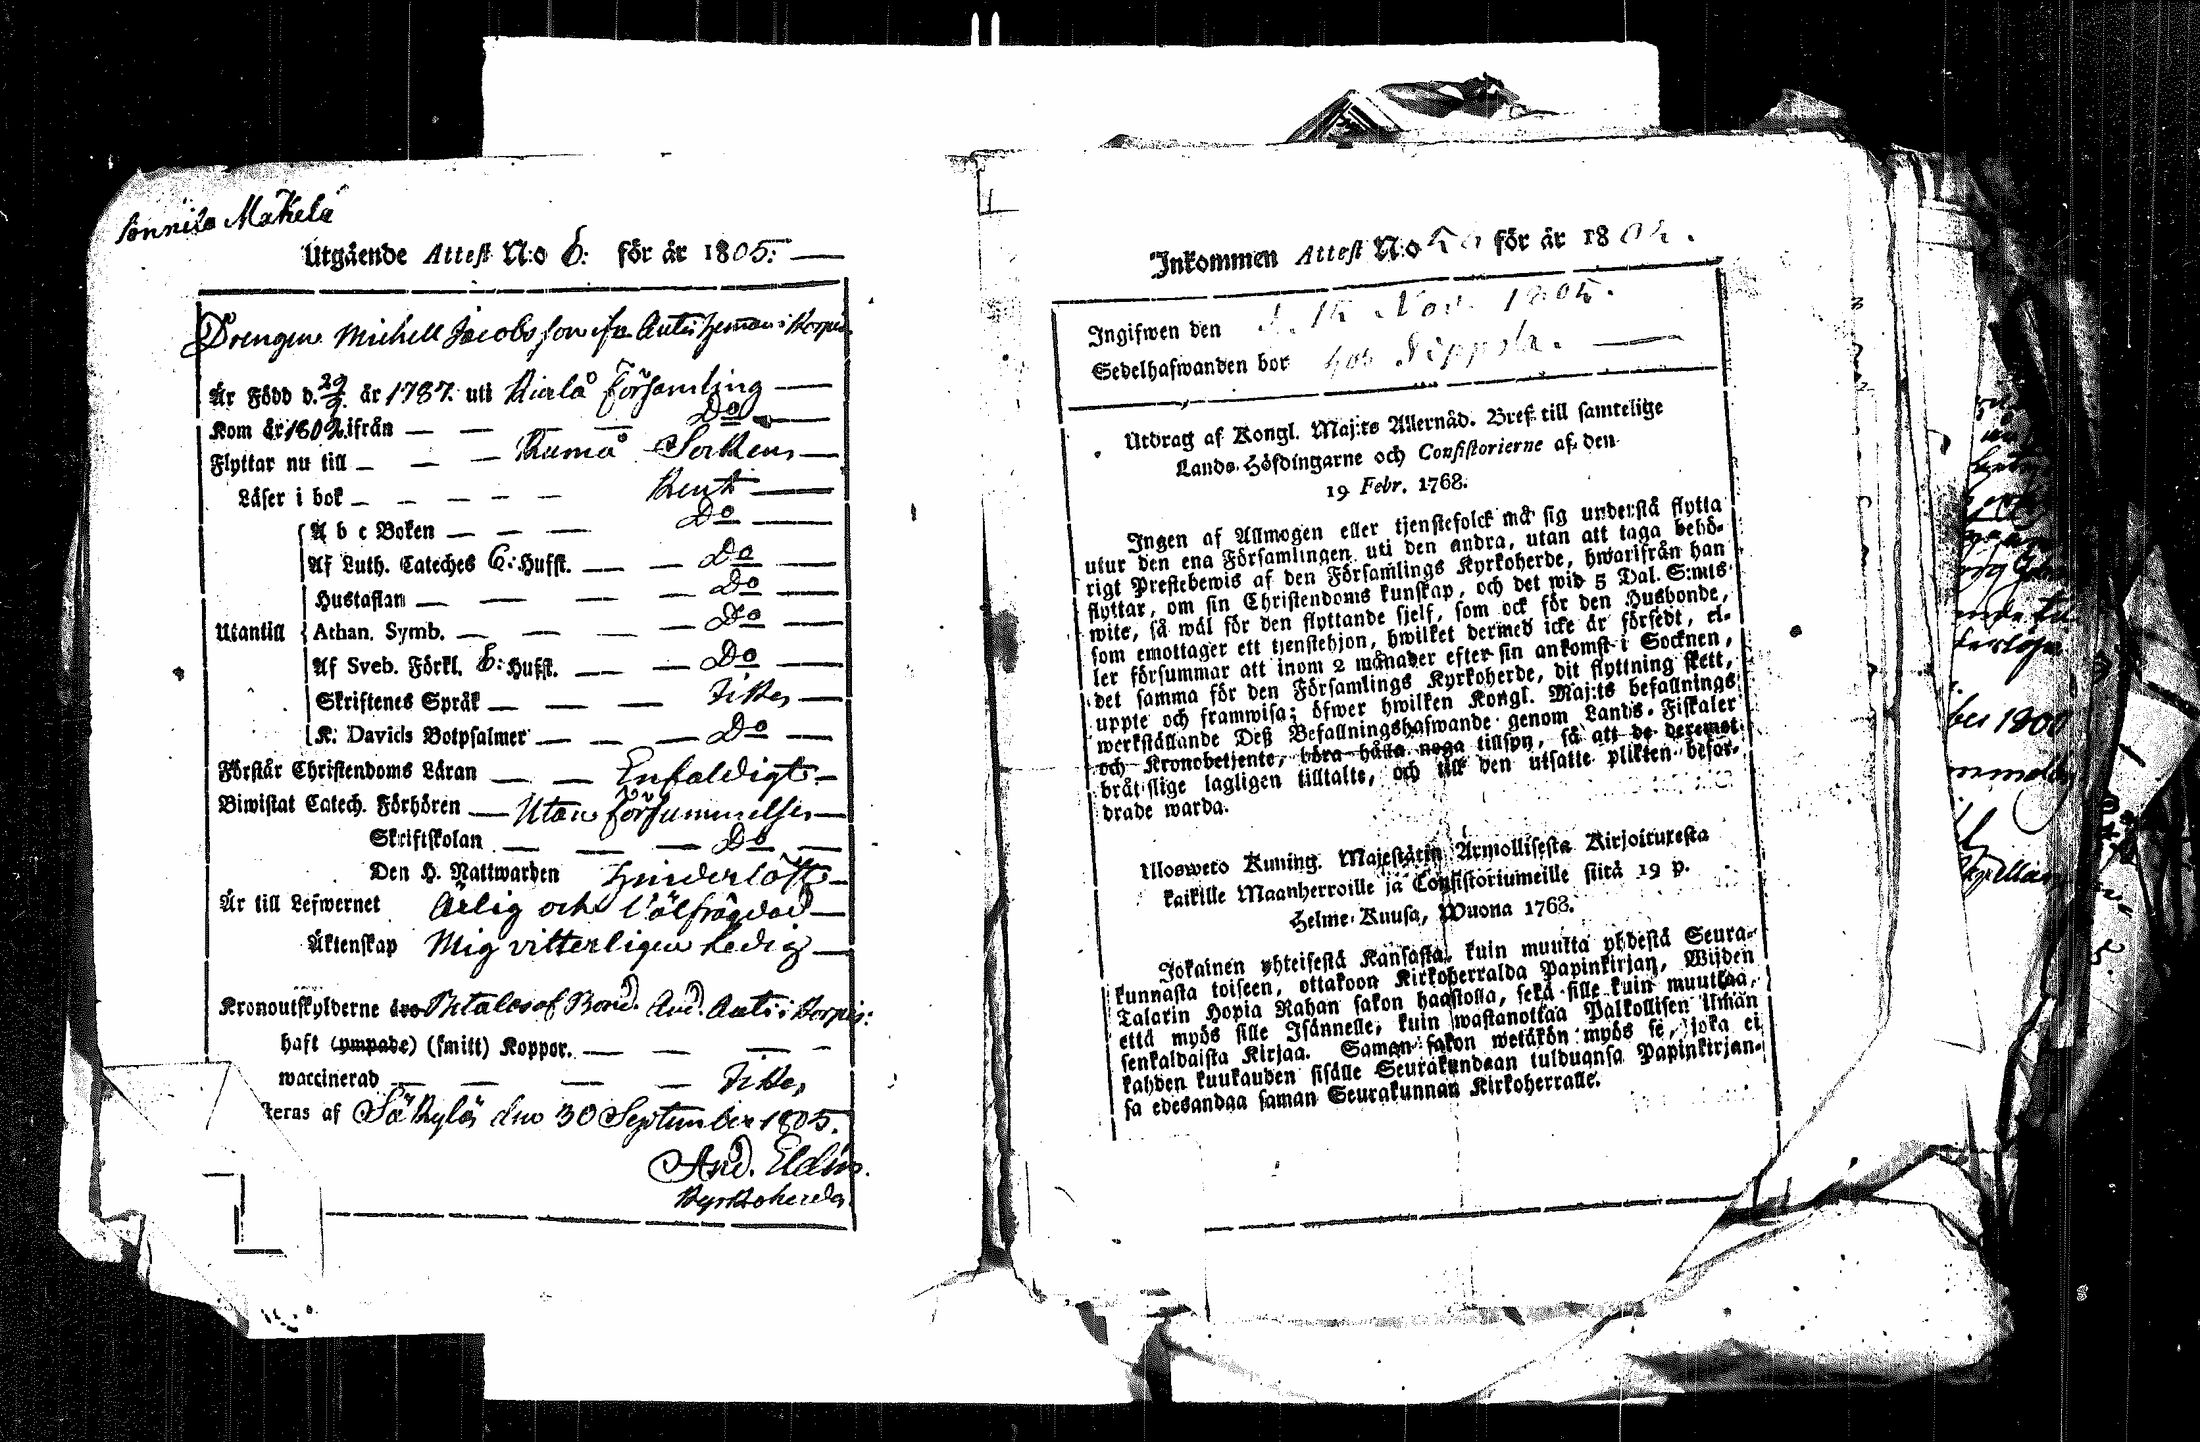 Sonnila Mäkelä
Utgående Attest N:o 6: för år 1805:
Drengen Michell Jacobsson ifrån Antis hemman i Korpis
Är Född d. 29/9. år 1787. uti Kiulo Församling
Kom år 1802. ifrån Do
Flyttar nu till Eumo Sockn
Läser i bok Rent
A b c Boken Do
Af Luth. Cateches 6: Hufst. Do
Hustaflan Do
Utantill Athan. Symb. Do
Af Sveb. Förkl. 6: Hufst. Do
Skriftenes Språk Icke
K: Davids Botpsalmer Do
Förstår Christendoms Läran Enfaldigt
Biwistat Catech. Förhören Utan försummelse
Skriftskolan Do
Den H. Nattwarden
Är till Lefwernet Ärlig och Välfrägdad
Äktenskap Mig vitterligen Ledig
Kronoutskylderne Betalas af Bond. And. Anti i Korpis:
haft (ympade) (smitt) Koppor.
waccinerad Icke
steras af Säkylä den 30 September 1805.
And. Eldin
Kyrkoherde
Inkommen Attest N:o för år 18
Ingifwen den Nov. 1805.
Sedelhafwanden bor hos Sippola.
Utdrag af Kongl. Maj:ts Allernåd. Bref till samtelige
Lands-Höfdingarne och Consistorierne af den
19 Febr. 1768.
Ingen af Allmogen eller tjenstefolck må sig understå flytta
utur den ena Församlingen uti den andra, utan att taga behö-
rigt Prestebewis af den Församlings Kyrkoherde, hwarifrån han
flyttar, om sin Christendoms kunskap, och det wid 5 Dal. S:mts
wite, så wäl för den flyttande sjelf, som ock för den Husbonde,
som emottager ett tjenstehjon, hwilket dermed icke är försedt, el-
ler försummar att inom 2 månader efter sin ankomst i Socknen,
det samma för den Församlings Kyrkoherde, dit flyttning skett,
uppte och framwisa; öfwer hwilken Kongl. Maj:ts befallnings
werkställande Deß Befallningshafwande genom Lands-Fiskaler
och Kronobetjente, böra hålla noga tillsyn, så att de deremot
bråtslige lagligen tilltalte, och till den utsatte plikten befor-
drade warda.
Ulosweto Kuning. Majestätin Armollisesta Kirjoituresta
kaikille Maanherroille ja Consistoriumeille siitä 19 p.
Helme-Kuusa, Wuona 1768.
Jokainen yhteisestä Kansasta, kuin muutta yhdestä Seura-
kunnasta toiseen, ottakoon Kirkoherralda Papinkirjan, Wijden
Talarin Hopia Rahan sakon haastolla, sekä sille kuin muuttaa,
että myös sille Isännelle, kuin wastanottaa Palkollisen ilman
senkaldaista Kirjaa. Saman sakon wetäkön myös se, joka ei
kahden kuukauden sisälle Seurakundaan tulduansa Papinkirjan-
sa edesandaa saman Seurakunnan Kirkoherralle.